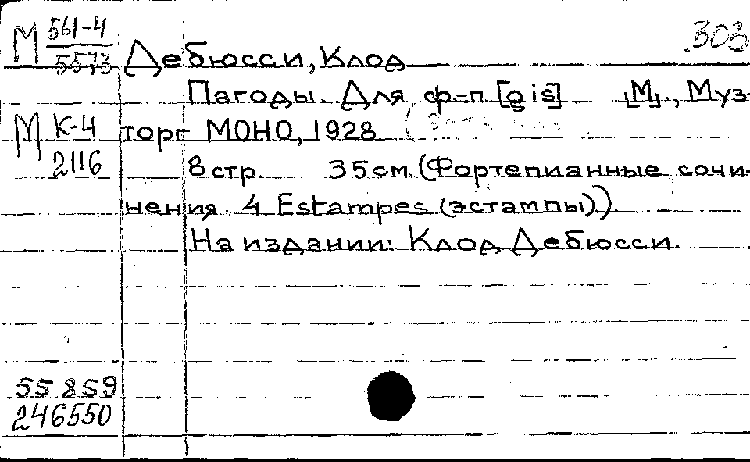 М 561-4
5573
303
Дебюсси, Клод
Пагоды. Для ф-п [gis] [М]., Муз-
М К-4
2116
торг МОНО, 1928
8 стр. 35 см. (Фортепианные сочи-
нения. 4 Estampes (эстампы)).
На издании: Клод Дебюсси.
55859
246550